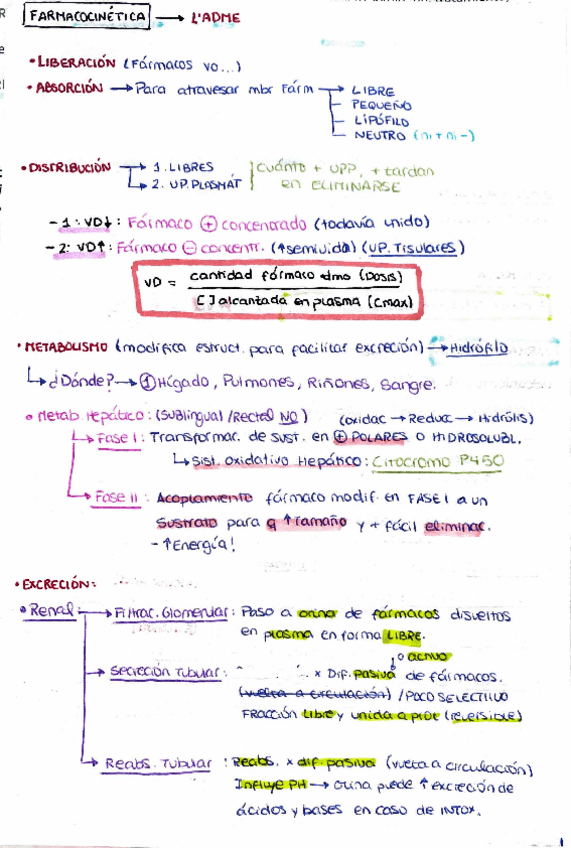 FARMACOCINÉTICA → L'ADME
• LIBERACIÓN (Fármacos vo...)
• ABSORCIÓN → Para atravesar mbr Fárm → LIBRE
PEQUEÑO
LIPÓFILO
NEUTRO (ni + ni -)
• DISTRIBUCIÓN → 1. LIBRES
2. UP. PLASMÁT
Cuánto + UPP, + tardan
en ELIMINARSE
- 1: VD↓: Fármaco ⊕ concentrado (todavía unido)
- 2: VD↑: Fármaco ⊖ concentr. (↑semivida) (UP. Tisulares)
VD = cantidad fármaco admo (Dosis)
[ ] alcanzada en plasma (Cmax)
• METABOLISMO (modifica estruct. para facilitar excreción) → Hidrófilo
↳ ¿Dónde? → ① Hígado, Pulmones, Riñones, Sangre.
• Metab. Hepático: (Sublingual / Rectal NO) (oxidac → Reducc → Hidrólis)
↳ Fase I: Transformac. de sust. en ⊕ POLARES o HIDROSOLUBL.
↳ Sist. oxidativo Hepático: Citocromo P450
↳ Fase II: Acoplamiento fármaco modif. en FASE I a un
Sustrato para q ↑Tamaño y + fácil eliminac.
- ↑Energía!
• EXCRECIÓN:
• Renal: → Filtrac. Glomerular: Paso a orina de fármacos disueltos
en plasma en forma LIBRE.
o activa
→ Secreción Tubular: x Dif. pasiva de fármacos.
(vuelta a circulación) / POCO SELECTIVO
FRACCIÓN Libre y unida a prot (reversible)
→ Reabs. Tubular: Reabs. x dif. pasiva (vuelta a circulación)
Influye PH → orina puede ↑ excreción de
ácidos y bases en caso de INTOX.